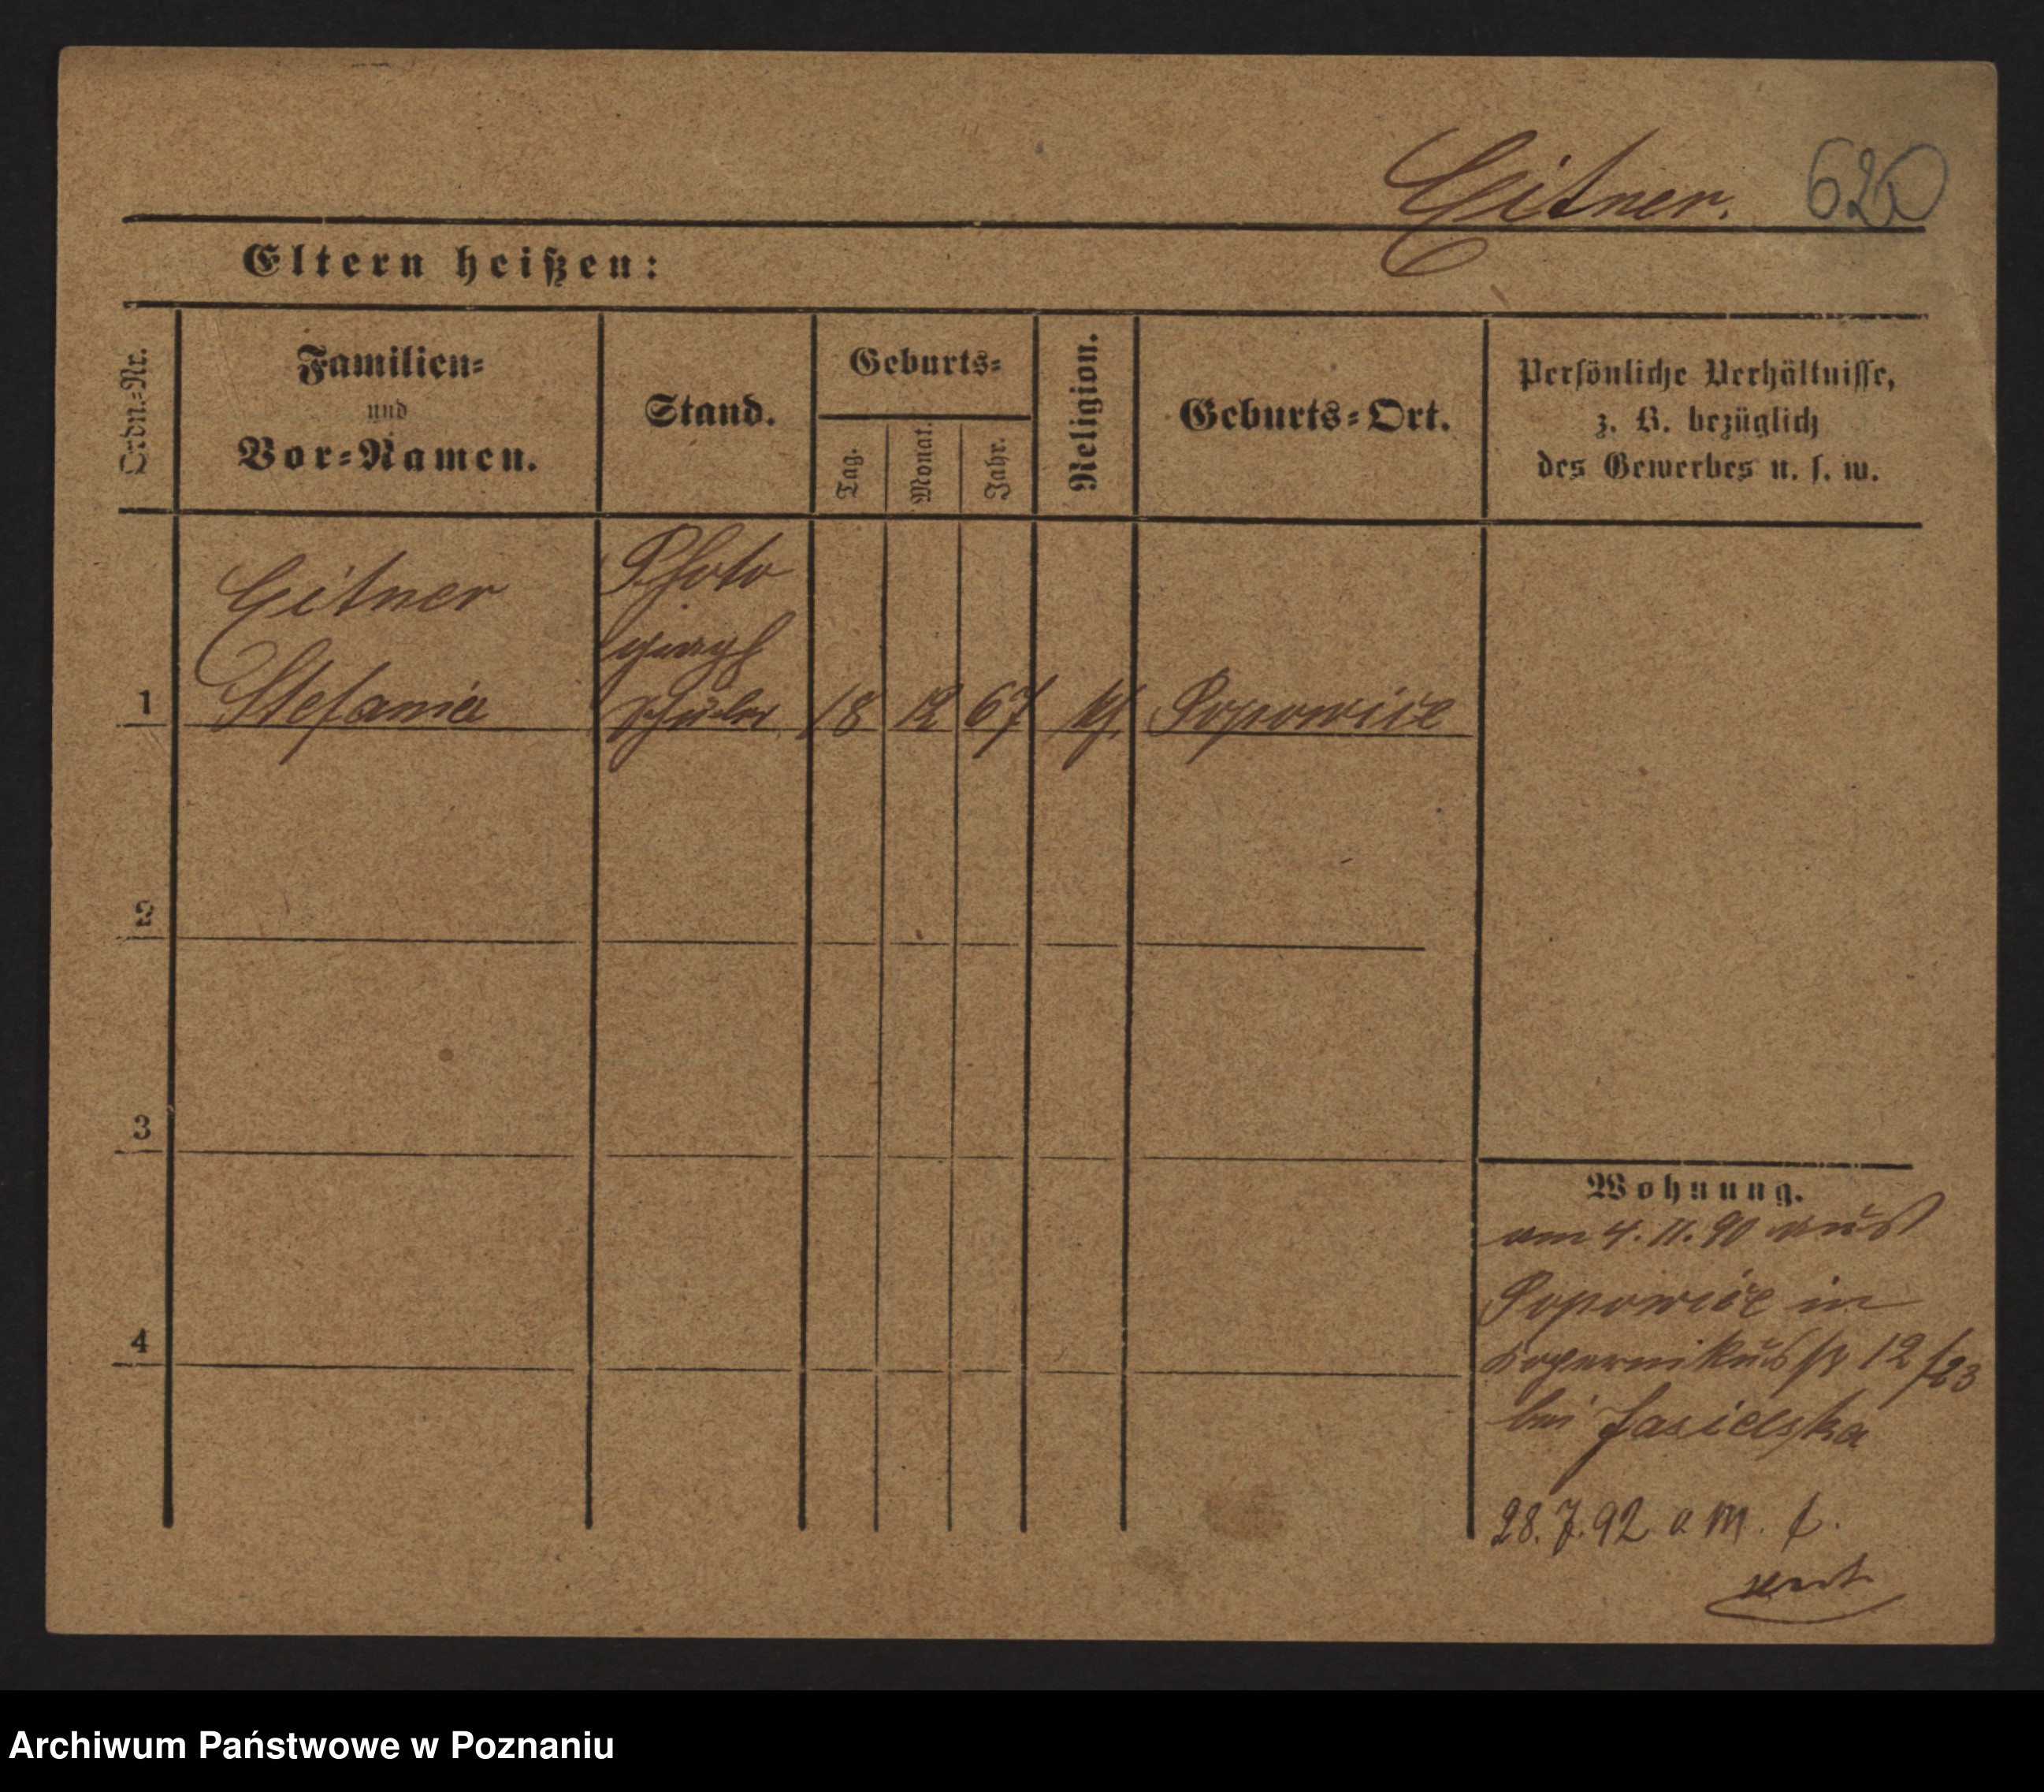 Eitner. 620
Eltern heißen:
Ordn.=Nr.
Familien=
und
Vor=Namen.
Stand.
Geburts=
Tag.
Monat.
Jahr.
Religion.
Geburts=Ort.
Persönliche Verhältnisse,
z. B. bezüglich
des Gewerbes u. s. w.
Eitner
Stefania
Photo
graph
1
18 12 67 kf. Popowice
2
3
4
Wohnung.
am 4. 11. 90 aus
Popowice in
Kopernikusstr 12/23
bei Jasielska
28. 7. 92 a. M.
Archiwum Państwowe w Poznaniu